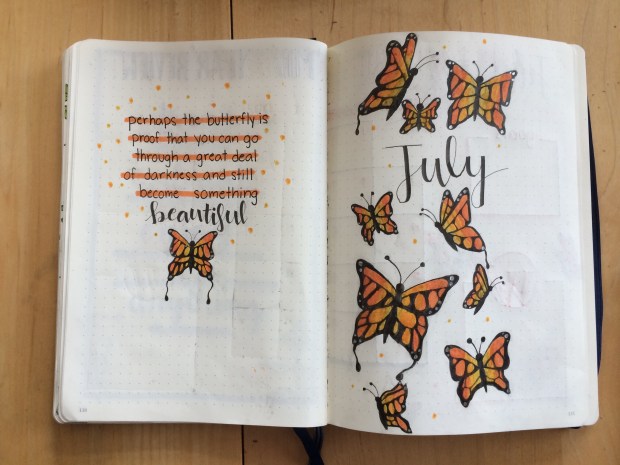 perhaps the butterfly is
proof that you can go
through a great deal
of darkness and still
become something
beautiful
July